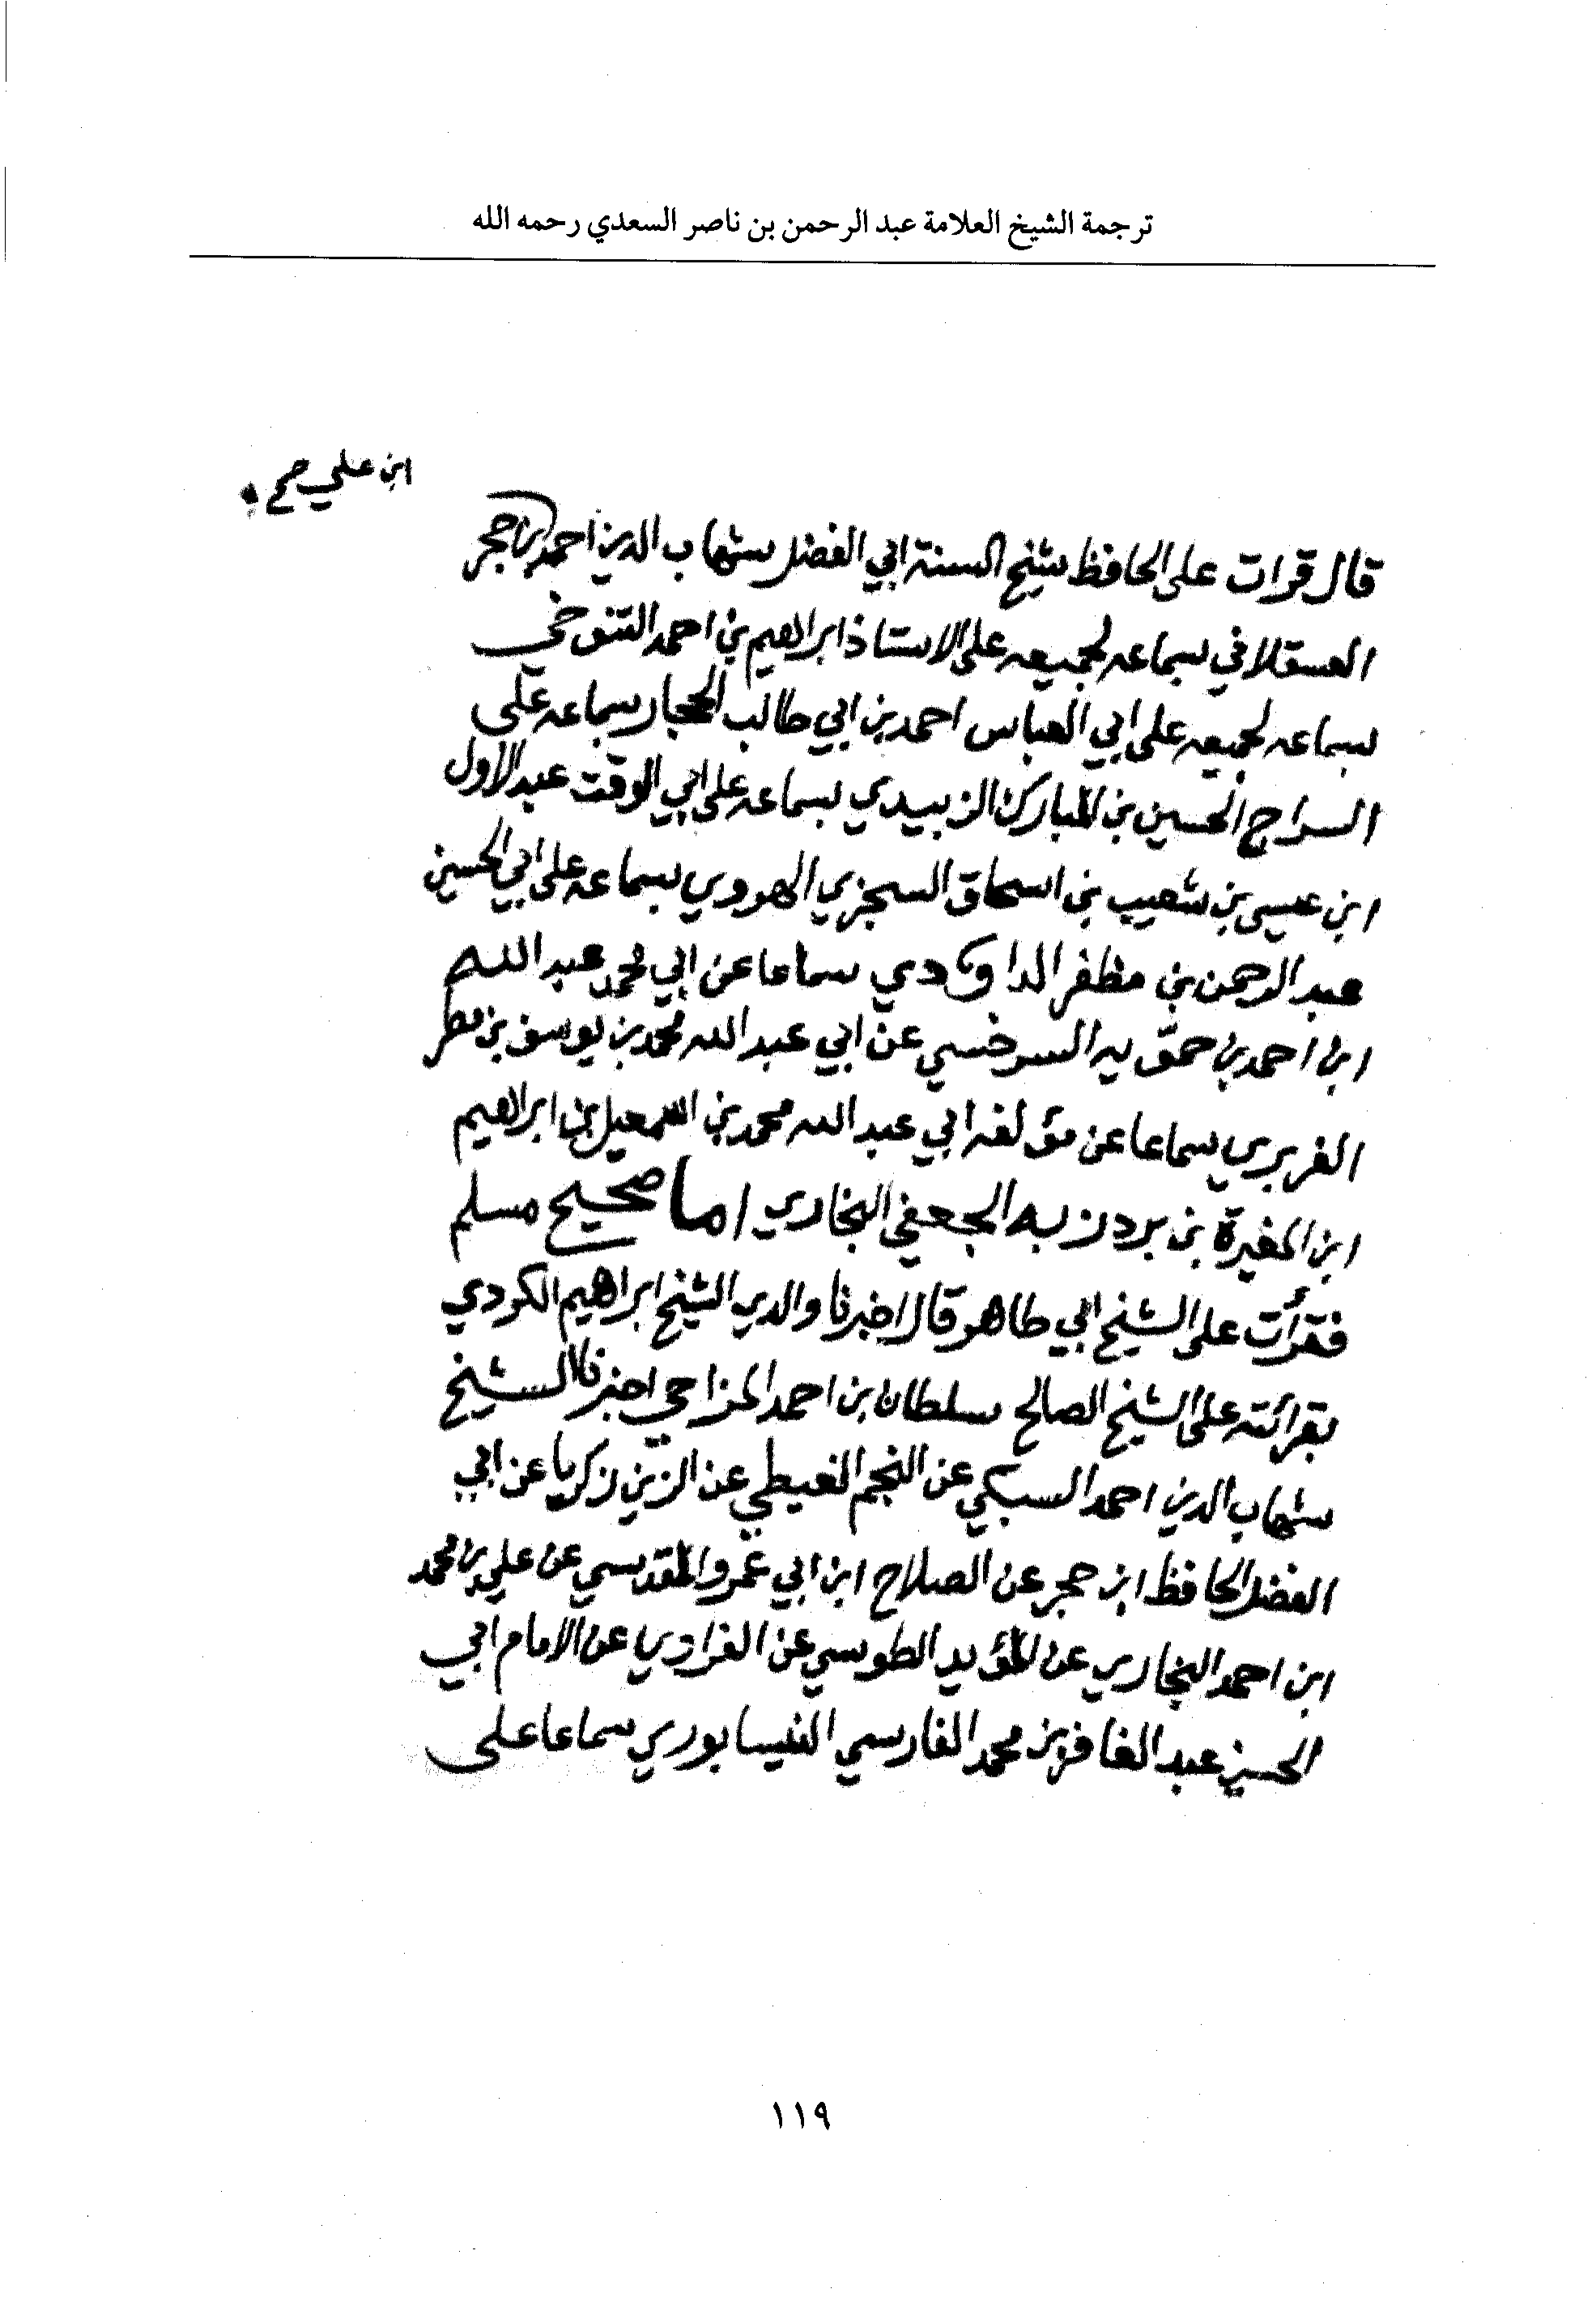 ترجمة الشيخ العلامة عبد الرحمن بن ناصر السعدي رحمه الله
ابن علي صح
قال قرات على الحافظ شيخ السنة ابي الفضل شهاب الدين احمد بن حجر
العسقلاني بسماعه لجميعه على الاستاذ ابراهيم بن احمد التنوخي
بسماعه لجميعه على ابي العباس احمد بن ابي طالب الحجار بسماعه على
السراج الحسين بن المبارك الزبيدي بسماعه على ابي الوقت عبد الاول
ابن عيسى بن شعيب بن اسحاق السجزي الهروي بسماعه على ابي الحسين
عبد الرحمن بن مظفر الداودي سماعا عن ابي محمد عبد الله
ابن احمد بن حمويه السرخسي عن ابي عبد الله محمد بن يوسف بن مطر
الفربري سماعا عن مؤلفه ابي عبد الله محمد بن اسمعيل بن ابراهيم
ابن المغيرة بن بردزبه الجعفي البخاري اما صحيح مسلم
فقرأت على الشيخ ابي طاهر قال اخبرنا والدي الشيخ ابراهيم الكردي
بقرائته على الشيخ الصالح سلطان بن احمد المزاحي اخبرنا الشيخ
شهاب الدين احمد السبكي عن النجم الغيطي عن الزين زكريا عن ابي
الفضل الحافظ ابن حجر عن الصلاح ابن ابي عمرو المقدسي عن علي بن محمد
ابن احمد البخاري عن المؤيد الطوسي عن الفراوي عن الامام ابي
الحسين عبد الغافر بن محمد الفارسي النيسابوري سماعا على
١١٩